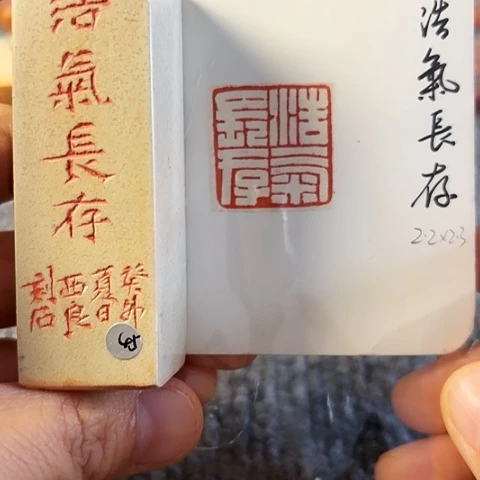 浩氣長存
癸卯
夏日
西良
刻石
45
浩氣長存
浩氣長存
2.2x2.3